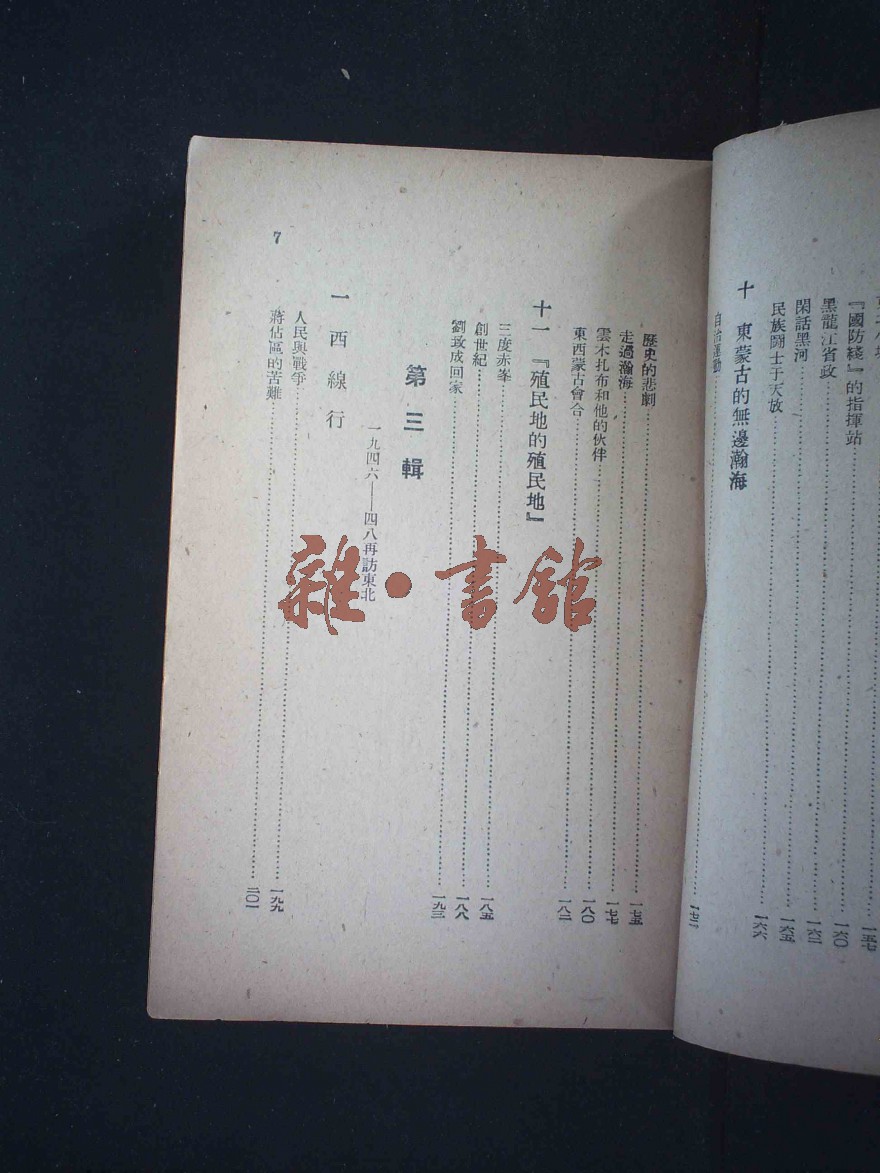 一五七
『國防綫』的指揮站……一六〇
黑龍江省政……一六二
閑話黑河……一六五
民族鬥士于天放……一六六
十 東蒙古的無邊瀚海
自治運動……一七二
歷史的悲劇……一七五
走過瀚海……一七七
雲木扎布和他的伙伴……一八〇
東西蒙古會合……一八二
十一 『殖民地的殖民地』
三度赤峯……一八五
創世紀……一八八
劉致成回家……一九三
第三輯
一九四六——四八再訪東北
一 西線行
人民與戰爭……一九九
蔣佔區的苦難……二〇一
7
雜·書館